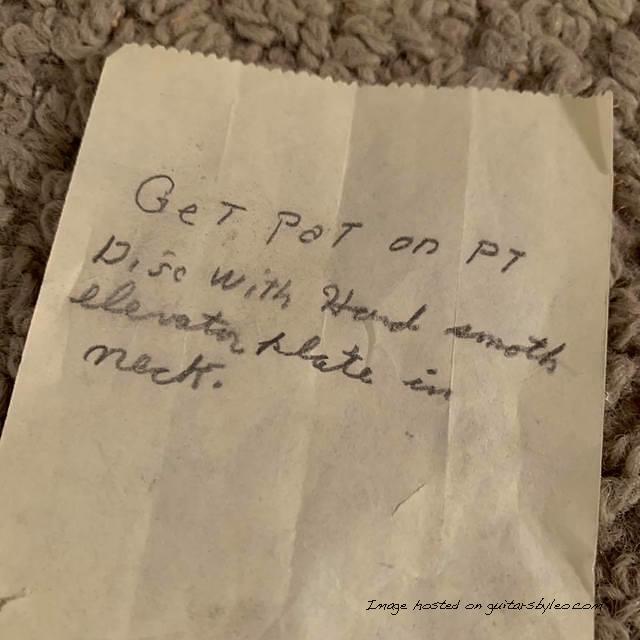 GeT PoT on PT
Disc with Hand smoth
elevator plate in
neck.
Image hosted on guitarsbyleo.com